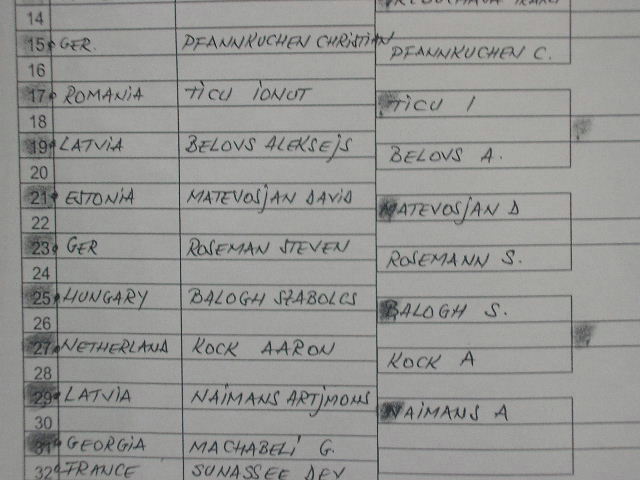 14
15 GER. PFANNKUCHEN CHRISTIAN
PFANNKUCHEN C.
16
17 ROMANIA TICU IONUT
TICU I
18
19 LATVIA BELOVS ALEKSEJS
BELOVS A.
20
21 ESTONIA MATEVOSJAN DAVID
MATEVOSJAN D
22
23 GER ROSEMAN STEVEN
ROSEMANN S.
24
25 HUNGARY BALOGH SZABOLCS
BALOGH S.
26
27 NETHERLAND KOCK AARON
KOCK A
28
29 LATVIA NAIMANS ARTJMONS
NAIMANS A
30
31 GEORGIA MACHABELI G.
32 FRANCE SUNASSEE DEV